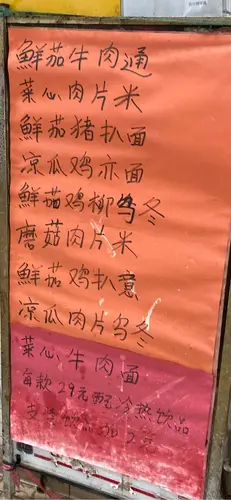 鮮茄牛肉通
菜心肉片米
鮮茄猪扒面
凉瓜鸡亦面
鮮茄鸡柳乌冬
磨菇肉片米
鮮茄鸡扒意
凉瓜肉片乌冬
菜心牛肉面
每款29元配冷热饮品
饮品加2元